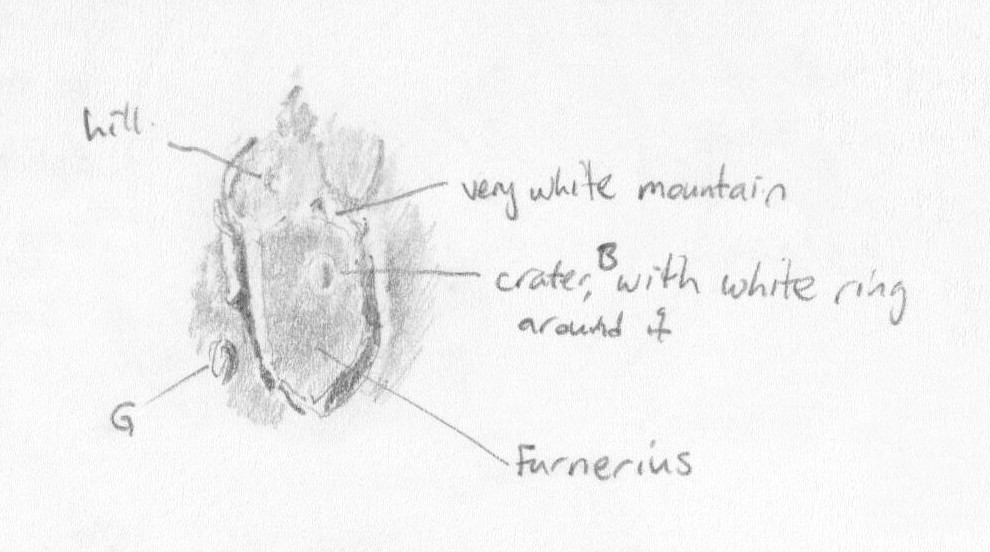 hill.
very white mountain
crater, B with white ring
around it
G
Furnerius